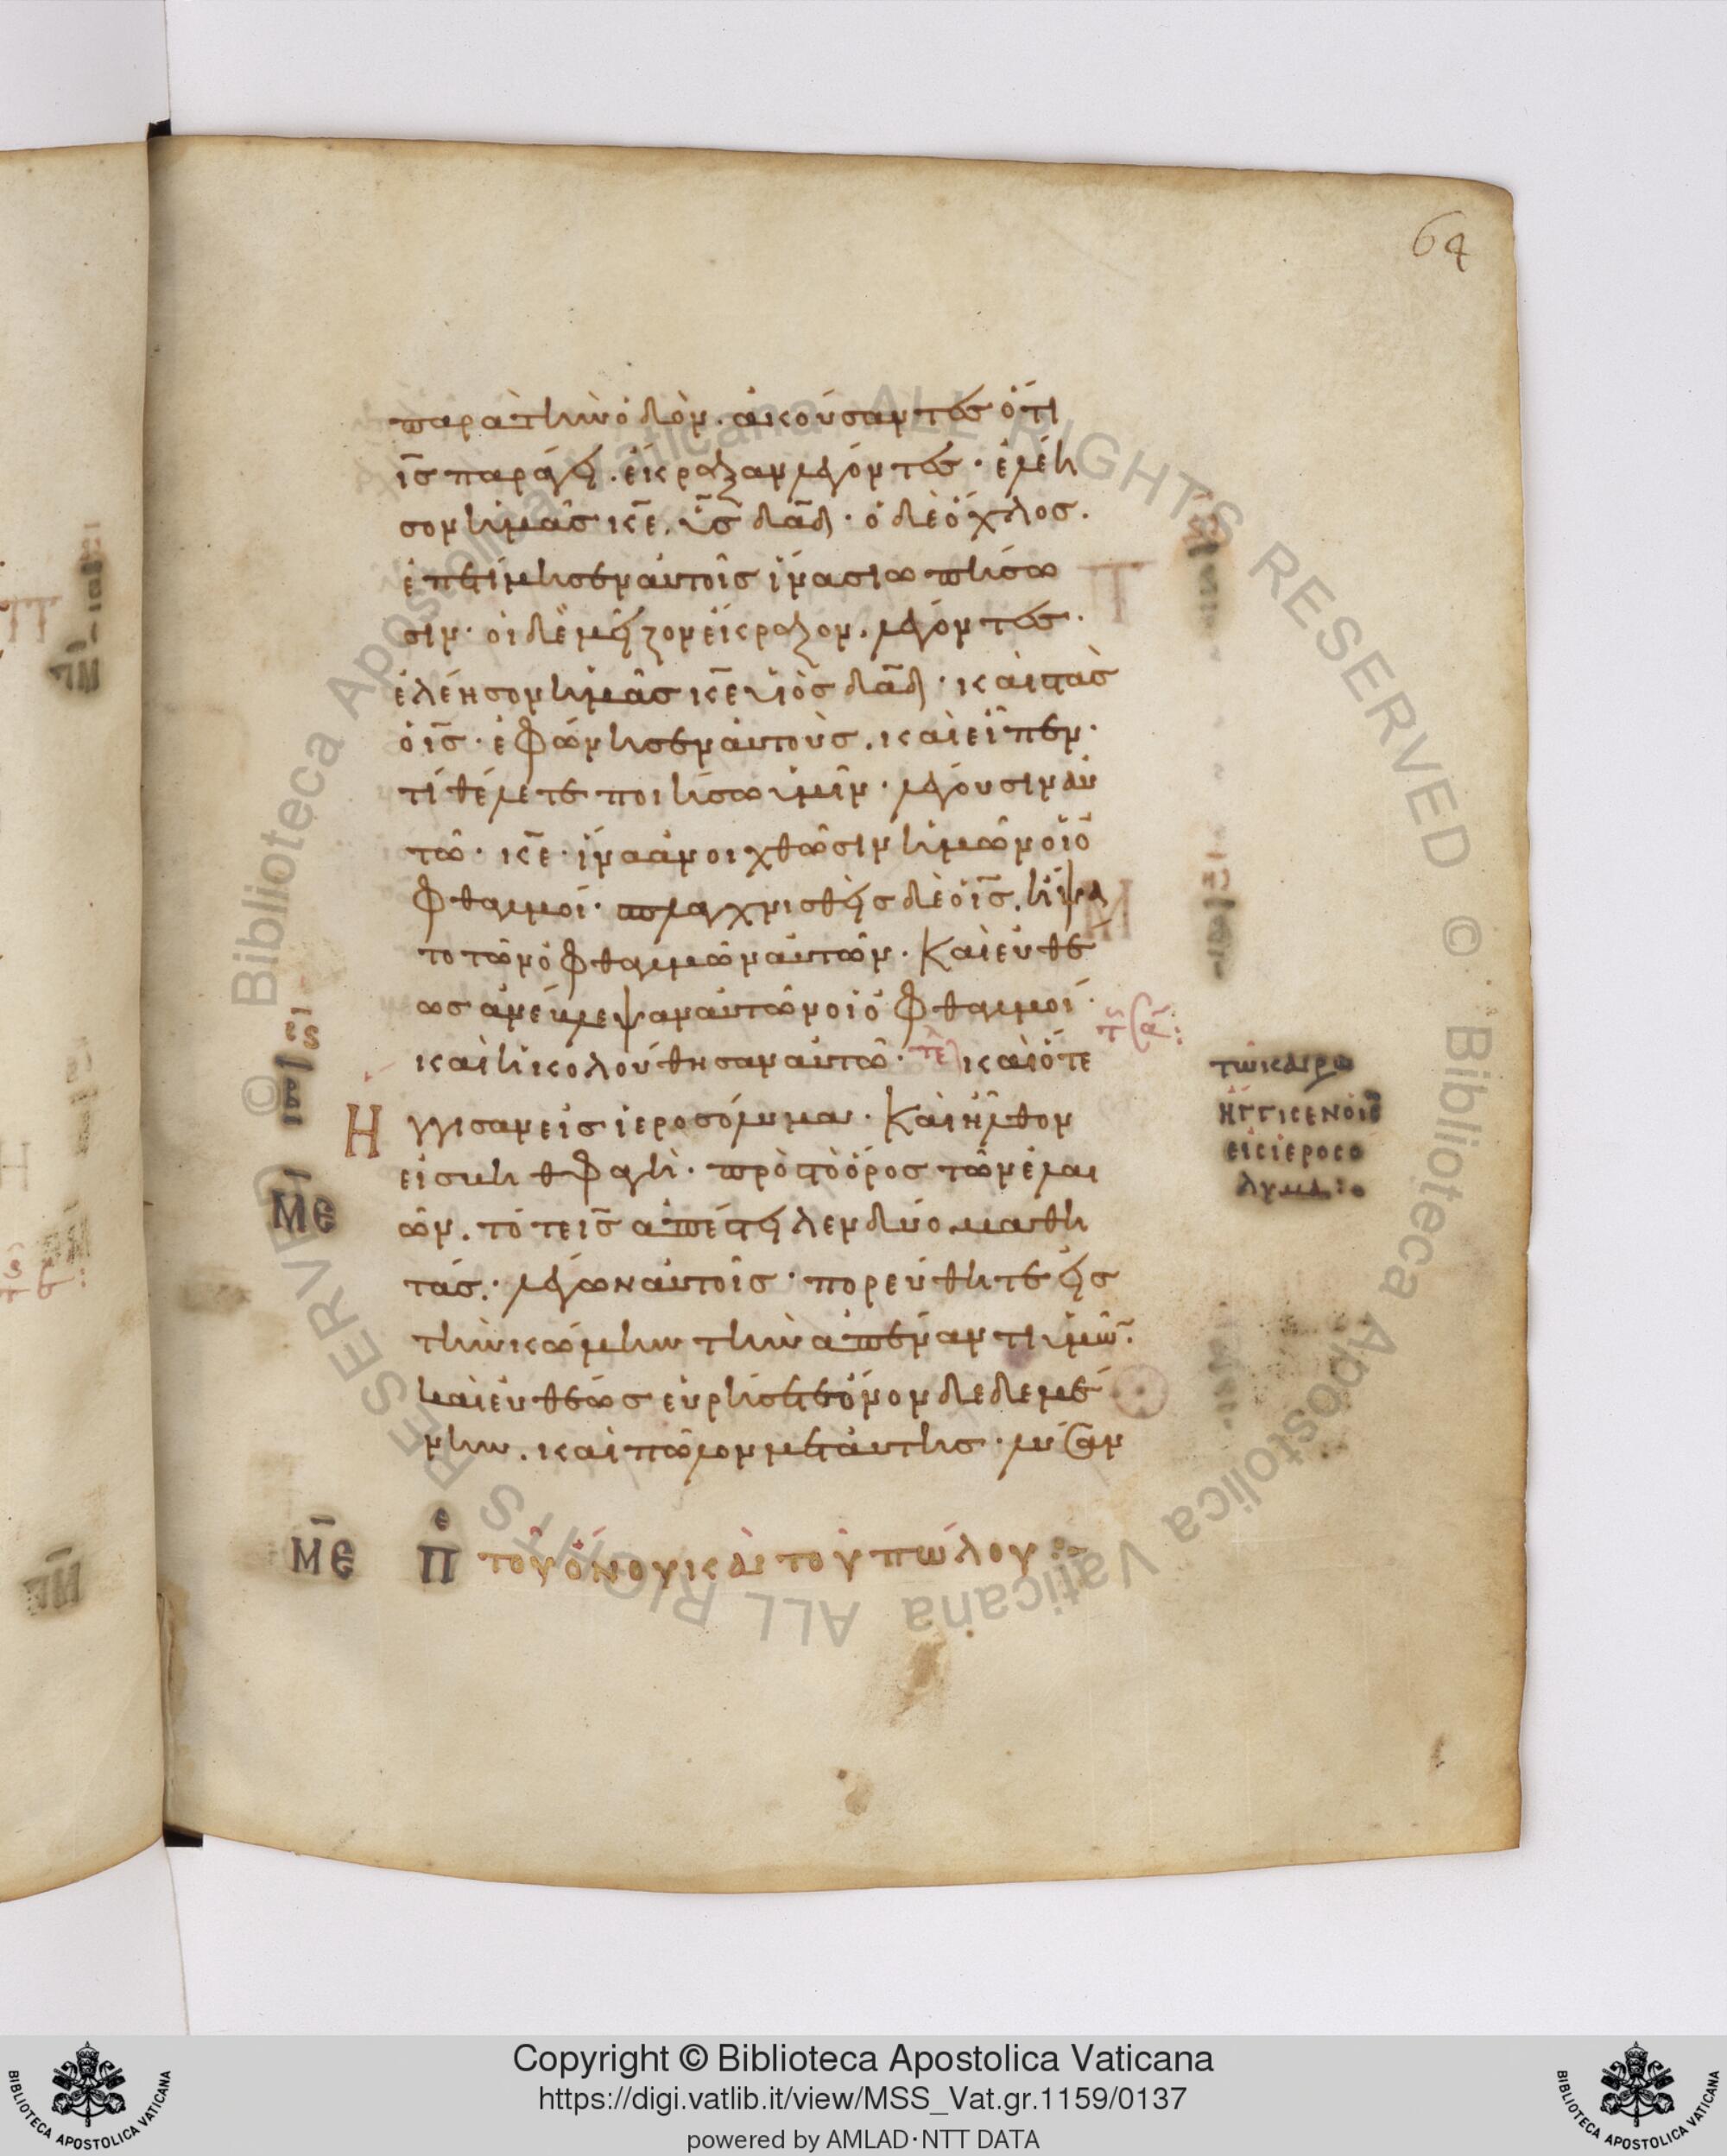 64
παρὰ τὴν ὁδόν. ἀκούσαντες ὅτι
ις̅ παράγει. ἔκραξαν λέγοντες· ἐλέη
σον ἡμᾶς κε̅. υς̅ δαδ̅· ὁ δὲ ὄχλος.
ἐπετίμησεν αὐτοῖς ἵνα σιωπήσω
σιν· οἱ δὲ μεῖζον ἔκραζον. λέγοντες·
ἐλέησον ἡμᾶς κε̅ υἱὸς δαδ̅· καὶ στὰς
ὁ ις̅· ἐφώνησεν αὐτοὺς. καὶ εἶπεν·
τί θέλετε ποιήσω ὑμῖν· λέγουσιν αὐ
τῶ· κε̅· ἵνα ἀνοιχθῶσιν ἡμῶν οἱ ὀ
φθαλμοί· σπλαγχνισθεὶς δὲ ὁ ις̅. ἥψα
το τῶν ὀφθαλμῶν αὐτῶν· Καὶ εὐθέ
ως ἀνέβλεψαν αὐτῶν οἱ ὀφθαλμοί·
καὶ ἠκολούθησαν αὐτῶ· τε̅λ καὶ ὅτε
Ηγγισαν εἰς ἱεροσόλυμα· Καὶ ἦλθον
εἰς βηθφαγὴ· πρὸς τὸ ὄρος τῶν ἐλαι
ῶν. τότε ις̅ ἀπέστειλεν δύο μαθη
τάς· λέγων αὐτοῖς· πορεύθητε εἰς
τὴν κώμην τὴν ἀπέναντι ὑμῶ̅·
καὶ εὐθέως εὑρήσετε ὄνον δεδεμέ
νην. καὶ πῶλον μετ' αὐτῆς· λύσαν
τῶ καιρῶ
ἤγγισεν ὁ ις̅
εἰς ἱεροσό
λυμα:
ΜΕ
Μ̅Ε Πε τοῦ ὄνου καὶ τοῦ πώλου
Biblioteca Apostolica Vaticana ALL RIGHTS RESERVED ©
Biblioteca Apostolica Vaticana ALL RIGHTS RESERVED ©
Copyright © Biblioteca Apostolica Vaticana
https://digi.vatlib.it/view/MSS_Vat.gr.1159/0137
powered by AMLAD·NTT DATA
BIBLIOTECA APOSTOLICA VATICANA
BIBLIOTECA APOSTOLICA VATICANA